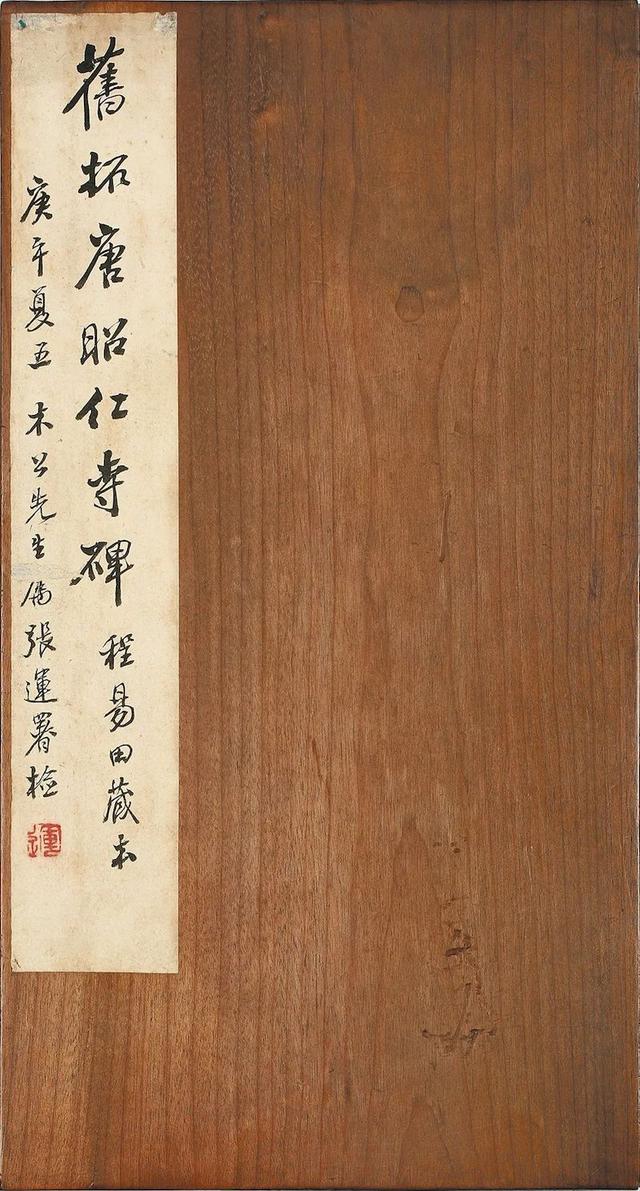 舊拓唐昭仁寺碑 程易田藏本
庚午夏五 木公先生屬 張運署檢
運